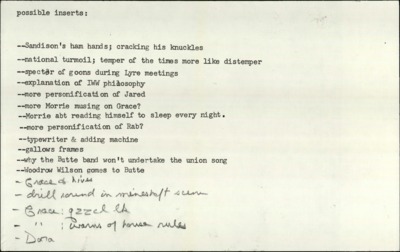 possible inserts:
--Sandison's ham hands; cracking his knuckles
--national turmoil; temper of the times more like distemper
--specter of goons during Lyre meetings
--explanation of IWW philosophy
--more personification of Jared
--more Morrie musing on Grace?
--Morrie abt reading himself to sleep every night.
--more personification of Rab?
--typewriter & adding machine
--gallows frames
--why the Butte band won't undertake the union song
--Woodrow Wilson comes to Butte
- Grace & hives
- drill sound in mineshaft scene
- Grace:
- " : warns of house rules
- Dora